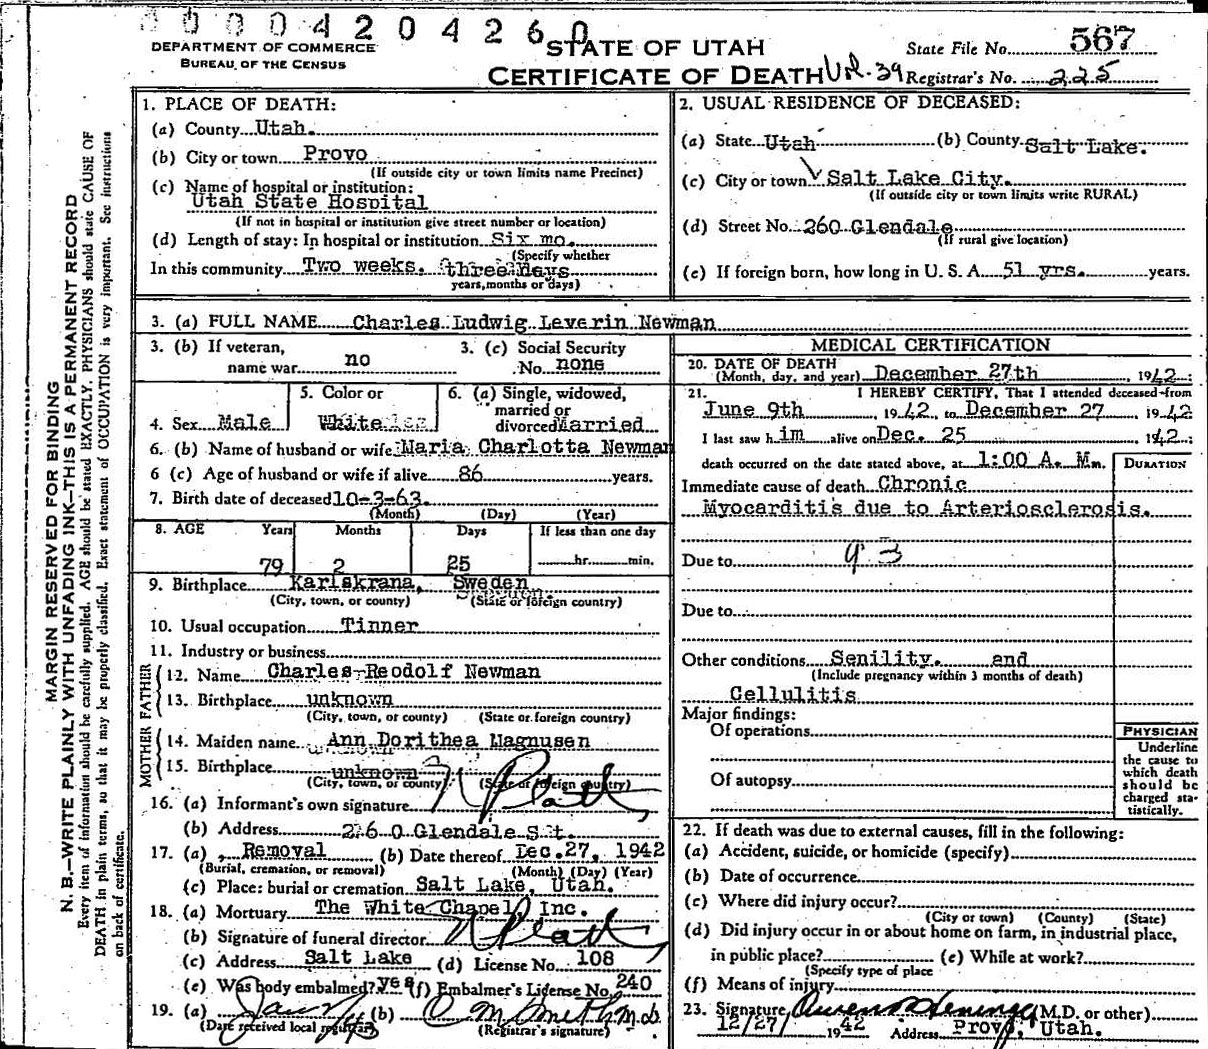 0 0 0 0 4 2 0 4 2 6 0
DEPARTMENT OF COMMERCE
BUREAU OF THE CENSUS
STATE OF UTAH
CERTIFICATE OF DEATH
Vol. 39
State File No. 567
Registrar's No. 225
MARGIN RESERVED FOR BINDING
N. B.—WRITE PLAINLY WITH UNFADING INK—THIS IS A PERMANENT RECORD
Every item of information should be carefully supplied. AGE should be stated EXACTLY. PHYSICIANS should state CAUSE OF
DEATH in plain terms, so that it may be properly classified. Exact statement of OCCUPATION is very important. See instructions
on back of certificate.
1. PLACE OF DEATH:
(a) County Utah.
(b) City or town Provo
(If outside city or town limits name Precinct)
(c) Name of hospital or institution:
Utah State Hospital
(If not in hospital or institution give street number or location)
(d) Length of stay: In hospital or institution Six mo.
(Specify whether
In this community Two weeks. three days
years, months or days)
2. USUAL RESIDENCE OF DECEASED:
(a) State Utah (b) County Salt Lake.
(c) City or town Salt Lake City.
(If outside city or town limits write RURAL)
(d) Street No. 260 Glendale
(If rural give location)
(e) If foreign born, how long in U. S. A. 51 yrs. years.
3. (a) FULL NAME Charles Ludwig Leverin Newman
3. (b) If veteran,
name war no
3. (c) Social Security
No. none
4. Sex Male
5. Color or
White
6. (a) Single, widowed,
married or
divorced Married
6. (b) Name of husband or wife Maria Charlotta Newman
6 (c) Age of husband or wife if alive 86 years.
7. Birth date of deceased 10-3-63.
(Month) (Day) (Year)
8. AGE Years Months Days If less than one day
79 2 25 hr. min.
9. Birthplace Karlskrana, Sweden
(City, town, or county) (State or foreign country)
10. Usual occupation Tinner
11. Industry or business
FATHER
12. Name Charles Reodolf Newman
13. Birthplace unknown
(City, town, or county) (State or foreign country)
MOTHER
14. Maiden name Ann Dorithea Magnusen
15. Birthplace unknown
(City, town, or county) (State or foreign country)
16. (a) Informant's own signature N Platt
(b) Address 260 Glendale St.
17. (a) Removal (b) Date thereof Dec.27, 1942
(Burial, cremation, or removal) (Month) (Day) (Year)
(c) Place: burial or cremation Salt Lake, Utah.
18. (a) Mortuary The White Chapel, Inc.
(b) Signature of funeral director N Platt
(c) Address Salt Lake (d) License No. 108
(e) Was body embalmed? yes (f) Embalmer's License No. 240
19. (a) Jan (b) O M Smith m.d.
(Date received local registrar) (Registrar's signature)
MEDICAL CERTIFICATION
20. DATE OF DEATH
(Month, day, and year) December 27th, 1942
21. I HEREBY CERTIFY, That I attended deceased from
June 9th, 1942, to December 27 1942
I last saw him alive on Dec. 25 1942
death occurred on the date stated above, at 1:00 A. M.
DURATION
Immediate cause of death Chronic
Myocarditis due to Arteriosclerosis.
Due to 93
Due to
Other conditions Senility. and
(Include pregnancy within 3 months of death)
Cellulitis
Major findings:
Of operations
Of autopsy
PHYSICIAN
Underline
the cause to
which death
should be
charged sta-
tistically.
22. If death was due to external causes, fill in the following:
(a) Accident, suicide, or homicide (specify)
(b) Date of occurrence
(c) Where did injury occur?
(City or town) (County) (State)
(d) Did injury occur in or about home on farm, in industrial place,
in public place? (e) While at work?
(Specify type of place
(f) Means of injury
23. Signature (M.D. or other)
12/27/ 1942 Address Provo, Utah.